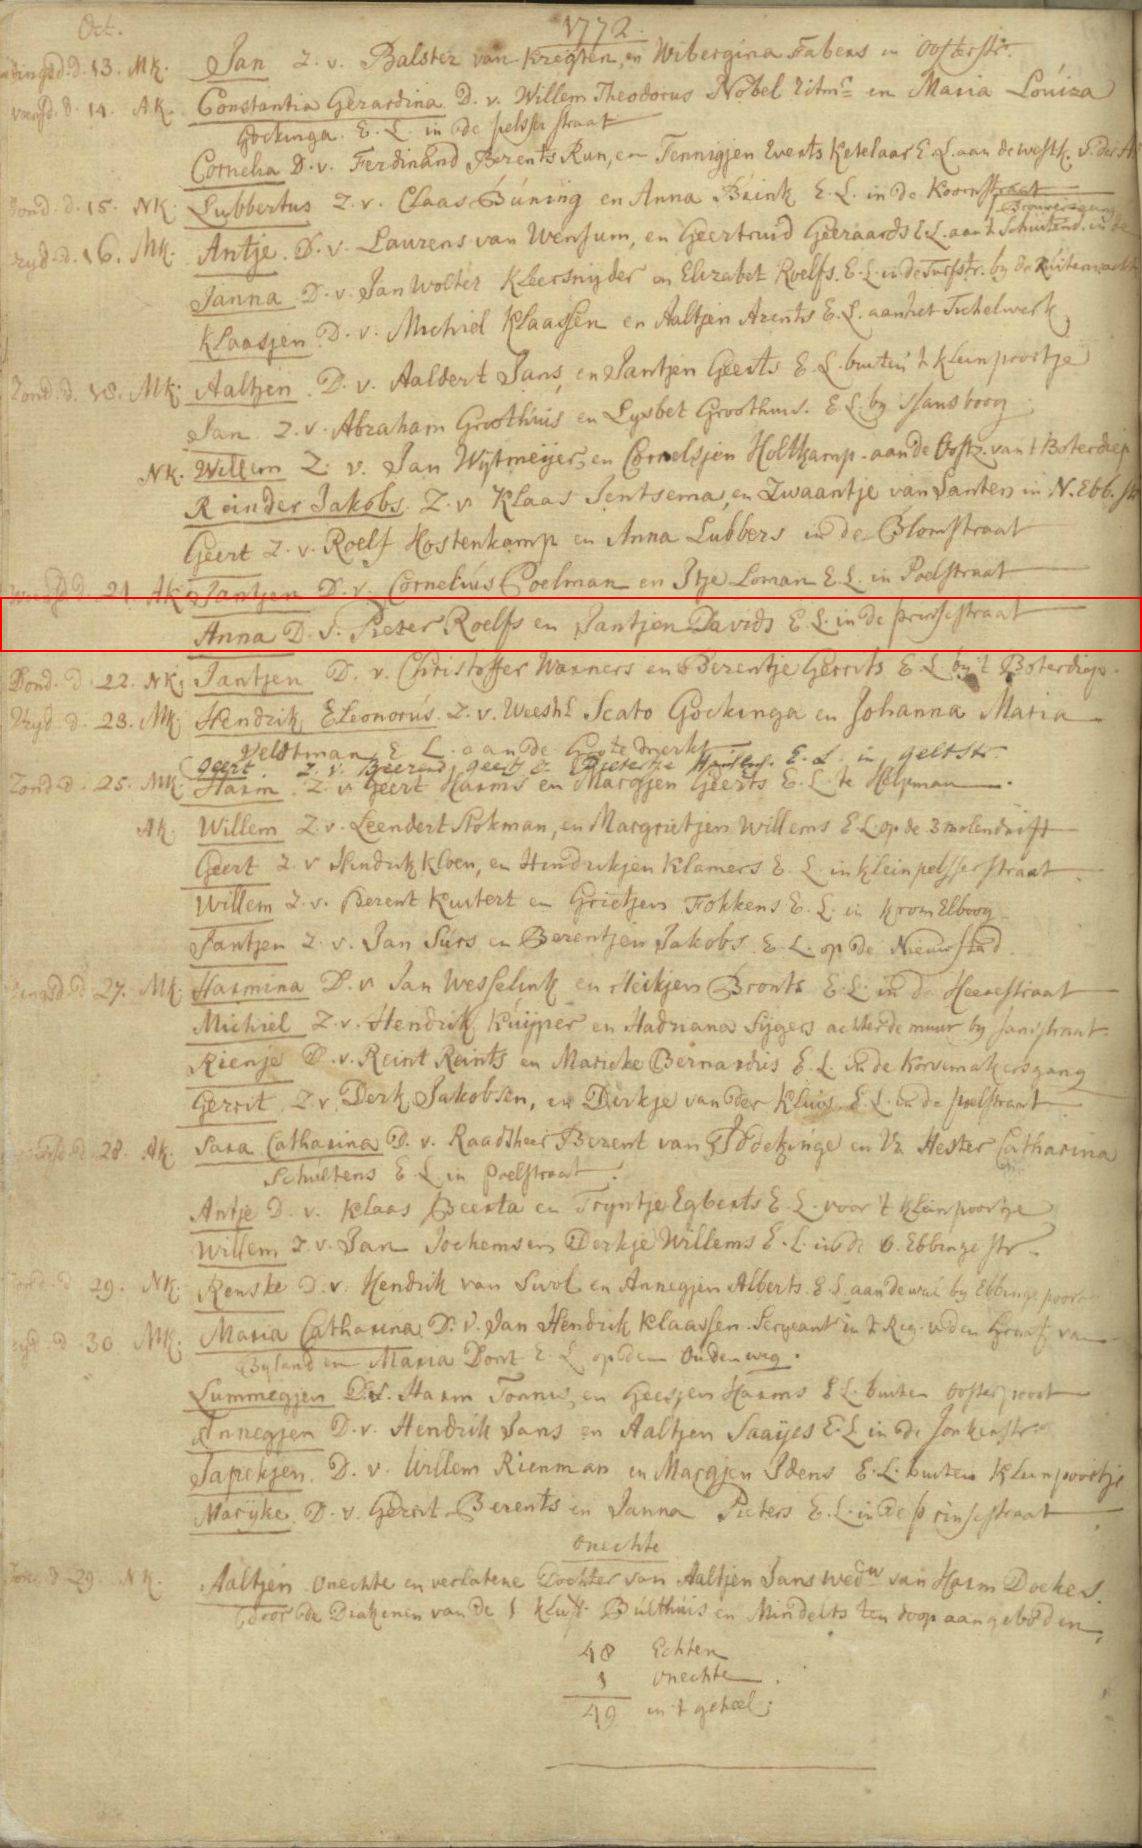 Oct. 1772.
13. Mk. Jan Z. v. Balster van Kregten, en Wibergina Fabens in Oosterstr.
14. AK. Constantia Gerardina D. v. Willem Theodorus Nobel ritmr en Maria Louiza
Gockinga. E. L. in de pelsterstraat
Cornelia D. v. Ferdinand Berents Run, en Tennigjen Everts Ketelaar E. L. aan de westk. v. der A
Dond. d. 15. NK. Lubbertus Z. v. Claas Büning en Anna Brink E. L. in de Koornstraat
Brouwersgang
Vryd. d. 16. MK. Antje. D. v. Laurens van Wensum, en Geertruid Geeraards E. L. aan t Schuitend. in de
Janna. D. v. Jan Wolter Kleersnyder en Elizabet Roelfs. E. L. in de Turfstr. by de Ruiterwacht
Klaasjen D. v. Michiel Klaassen en Aaltjen Arents E. L. aan het Tichelwerk
Zond. d. 18. MK. Aaltjen. D. v. Aaldert Jans, en Jantjen Geerts E. L. buiten 't kleinpoortje
Jan. Z. v. Abraham Groothuis en Lysbet Groothuis. E L. by
NK. Willem Z. v. Jan Wytmeijer, en Cornelsjen Holtkamp. aan de Oostz. van t Boterdiep
Reinder Jakobs. Z. v. Klaas Jentsema, en Zwaantje van Santen in N. Ebb. str
Geert Z. v. Roelf Hostenkamp en Anna Lubbers in de Blomstraat
d. 21. AK. Jantjen D. v. Cornelius Poelman en Itje Loman E. L. in Poelstraat
Anna D. v. Pieter Roelfs en Jantjen Davids E. L. in de prinsestraat
Dond. d. 22. NK. Jantjen D. v. Christoffer Wanners en Berentje Gerrits E. L. by 't Boterdiep.
Vryd. d. 23. MK. Hendrik Eleonorus. Z. v. Scato Gockinga en Johanna Maria
Veldtman E. L. aan de Grote merkt
Geert. Z. v. Beerend geert E. L. in geltstr.
Zond. d. 25. MK. Harm. Z. v. Geert Harms en Margjen Geerts E. L. te Helpman
Ak. Willem Z. v. Leendert Stokman, en Margrietjen Willems E. L. op de 3 molendrift
Geert Z. v. Hindrik Kloen, en Hindrikjen Klamers E. L. in kleinpelsterstraat
Willem Z. v. Berent Kuitert en Grietjen Fokkens E. L. in krom Elboog
Jantjen Z. v. Jan Surs en Berentjen Jakobs E. L. op de Nieuwstad.
d. 27. MK. Harmina D. v. Jan Wesselink en Meikjen Bronts E. L. in de Heerestraat
Michiel Z. v. Hendrik Kuijper en Hadriana Sijgers achter de muur by Janstraat
Rienje D. v. Reint Reints en Marieke Bernardus E. L. in de Korvemakersgang
Gerrit Z. v. Derk Jakobsen, en Dirkje van der Kluis E. L. in de poelstraat
d. 28. Ak. Sara Catharina D. v. Raadsheer Berent van en Vr. Hester Catharina
Schultens E. L. in Poelstraat.
Antje D. v. Klaas Beerta en Tryntje Egberts E. L. voor 't kleinpoortje
Willem Z. v. Jan Jochems en Derkje Willems E. L. in de O. Ebbinge str.
d. 29. NK. Renske D. v. Hendrik van Swol en Annegjen Alberts E. L. aan de wal by Ebbinge poort
d. 30 MK. Maria Catharina D. v. Jan Hendrik Klaassen. Sergeant in t Reg. v. den Graaf van
Byland en Maria Dont E. L. op den Ouden weg.
Lummegjen D. v. Harm Tonnis, en Geesjen Harms E L. buiten Oosterpoort
Annegjen D. v. Hendrik Jans en Aaltjen Saayes E. L. in de Jonkerstr
Japekjen. D. v. Willem Rienman en Margjen Idens E. L. buiten Kleinpoortje
Maryke. D. v. Gerrit Berents en Janna Pieters E. L. in de prinsestraat
onechte
d. 29. NK. Aaltjen onechte en verlatene Dochter van Aaltjen Jans wedw van Harm Doekes.
door de Diakenen van de 1 kluft Bulthuis en Mindelts ten doop aangeboden.
48 Echten
1 onechte
49 in 't geheel.